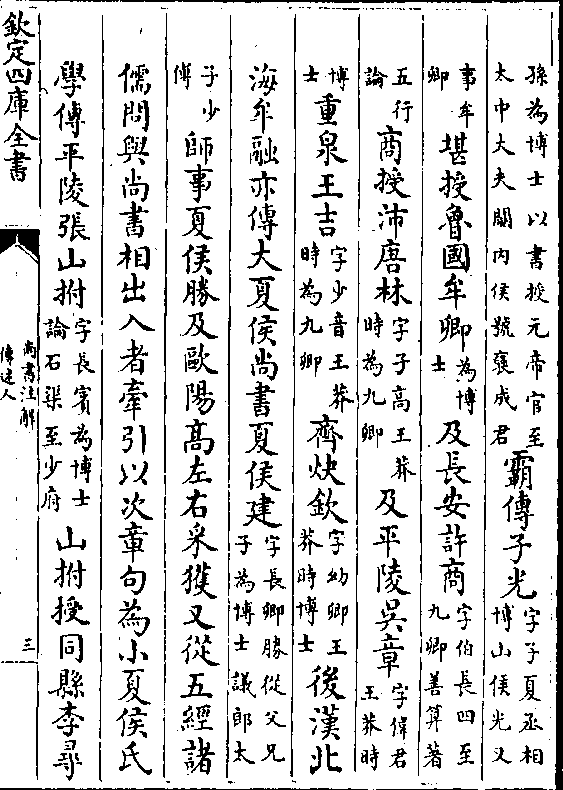 孫為博士以書授元帝官至
太中大夫關内侯號褒成君霸傳子光字子夏丞相
博山侯光又
事牟
卿堪授魯國牟卿為博
士及長安許商字伯長四至
九卿善算著
五行
論商授沛唐林字子高王莽
時為九卿及平陵吳章字偉君
王莽時
博
士重泉王吉字少音王莽
時為九卿齊炔欽字幼卿王
莽時博士後漢北
海牟融亦傳大夏侯尚書夏侯建字長卿勝從父兄
子為博士議郎太
子少
傅師事夏侯勝及歐陽髙左右采獲又從五經諸
儒問與尚書相出入者牽引以次章句為小夏侯氏
學傳平陵張山拊字長賓為博士
論石渠至少府山拊授同縣李尋
欽定四庫全書
尚書注解
傳述人
三